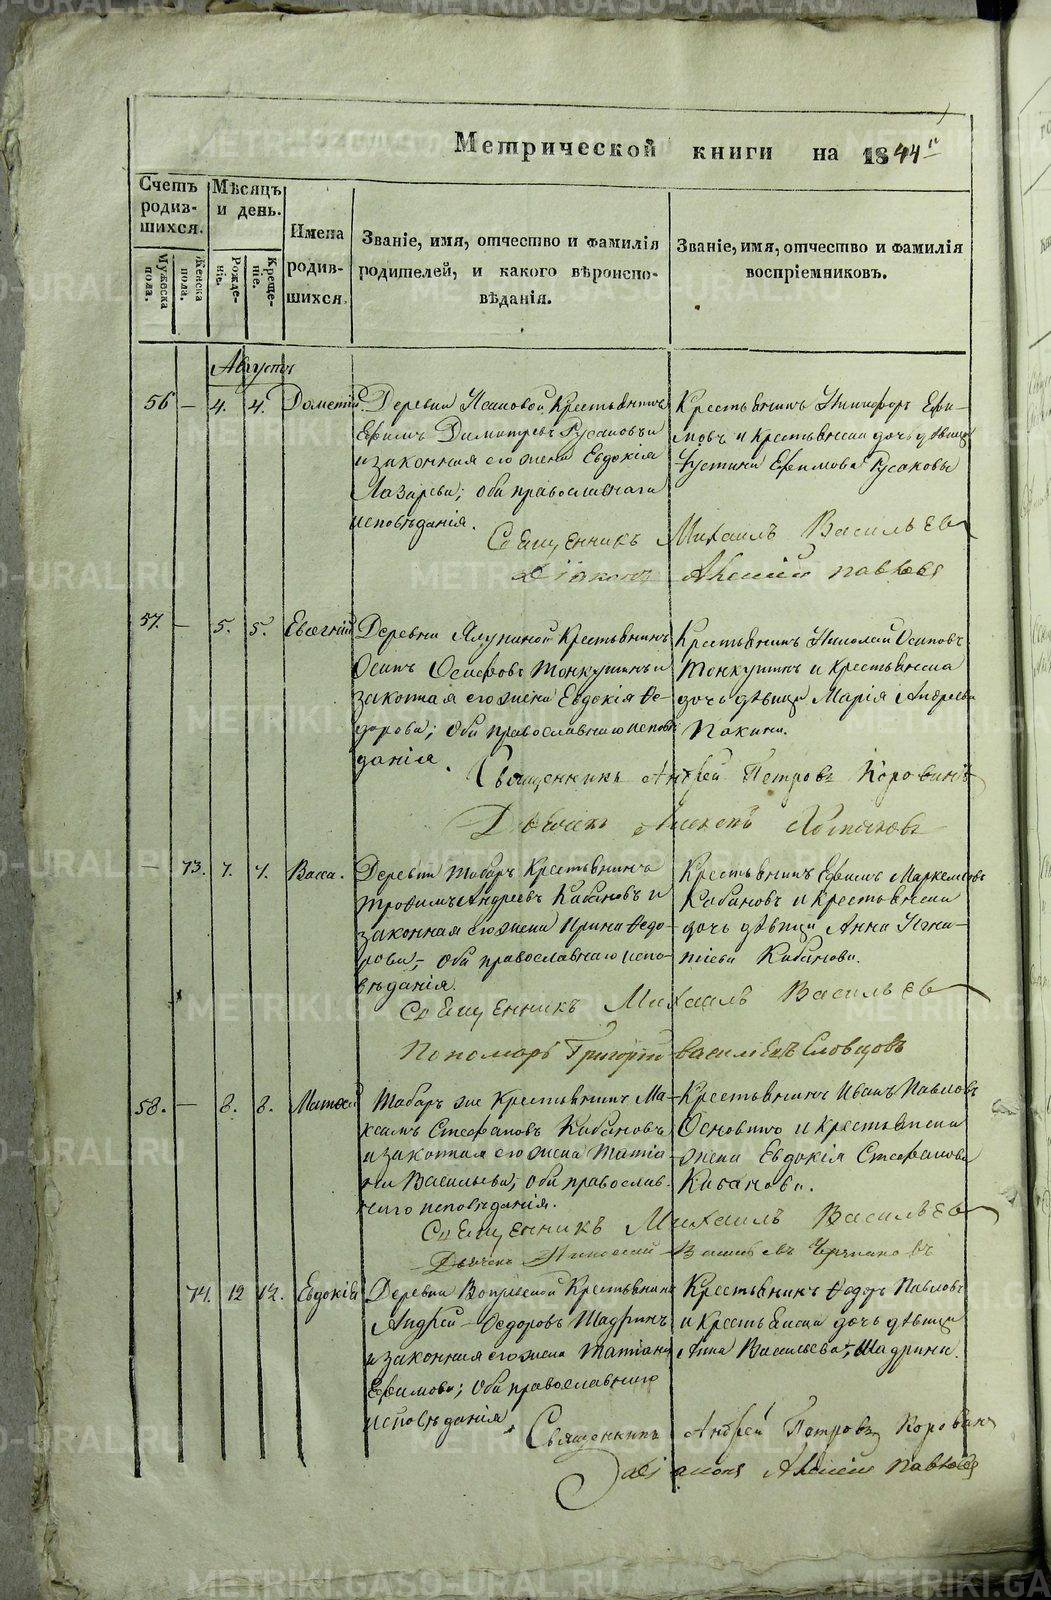 Метрической книги на 1844 г.
Счетъ родив-шихся.
Мужеска пола.
Женска пола.
Мѣсяцъ и день.
Рожде-ніе.
Креще-ніе.
Имена родив-шихся.
Званіе, имя, отчество и фамилія
родителей, и какого вѣроиспо-
вѣданія.
Званіе, имя, отчество и фамилія
воспріемниковъ.
Августъ
56 — 4. 4. Дометій.
Деревни Крестьянинъ
Ефимъ Димитревъ Русаковъ и
законная его жена Евдокія
Лазарева; оба православнаго
исповѣданія.
Крестьянинъ Никифоръ Ефи-
мовъ и крестьянская дочь дѣвица
Устинья Ефимова Русаковы
Священникъ Михаилъ Васильевъ
Діаконъ Алексій Павловъ
57. — 5. 5. Евгеній
Деревни Крестьянинъ
Осипъ Осиповъ Тонкушинъ и
законная его жена Евдокія Ѳе-
дорова; оба православнаго исповѣ-
данія.
Крестьянинъ Николай Осиповъ
Тонкушинъ и крестьянская
дочь дѣвица Марія Андреева
Пакина.
Священникъ Андрей Петровъ Коровинъ
Дьячекъ
— 73. 7. 7. Васса.
Деревни Табаръ Крестьянинъ
Трофимъ Андреевъ Кабановъ и
законная его жена Ирина Ѳедо-
рова; оба православнаго испо-
вѣданія.
Крестьянинъ Ефимъ Маркеловъ
Кабановъ и крестьянская
дочь дѣвица Анна Игна-
тіева Кабанова.
Священникъ Михаилъ Васильевъ
Пономарь Григорій Васильевъ Словцовъ
58. — 8. 8. Матѳей
Табаръ же Крестьянинъ Ма-
ксимъ Стефановъ Кабановъ
и законная его жена Татіа-
на Васильева; оба православ-
наго исповѣданія.
Крестьянинъ Иванъ Павловъ
и крестьянская
жена Евдокія Стефанова
Кабанова.
Священникъ Михаилъ Васильевъ
Дьячекъ Николай
74. 12 12. Евдокія
Деревни Крестьянинъ
Андрей Ѳедоровъ Шадринъ
и законная его жена Татіана
Ефимова; оба православнаго
исповѣданія.
Крестьянинъ Ѳедоръ Павловъ
и крестьянская дочь дѣвица
Анна Васильева, Шадрины.
Священникъ Андрей Петровъ Коровинъ
Діаконъ Алексій Павловъ
METRIKI.GASO-URAL.RU